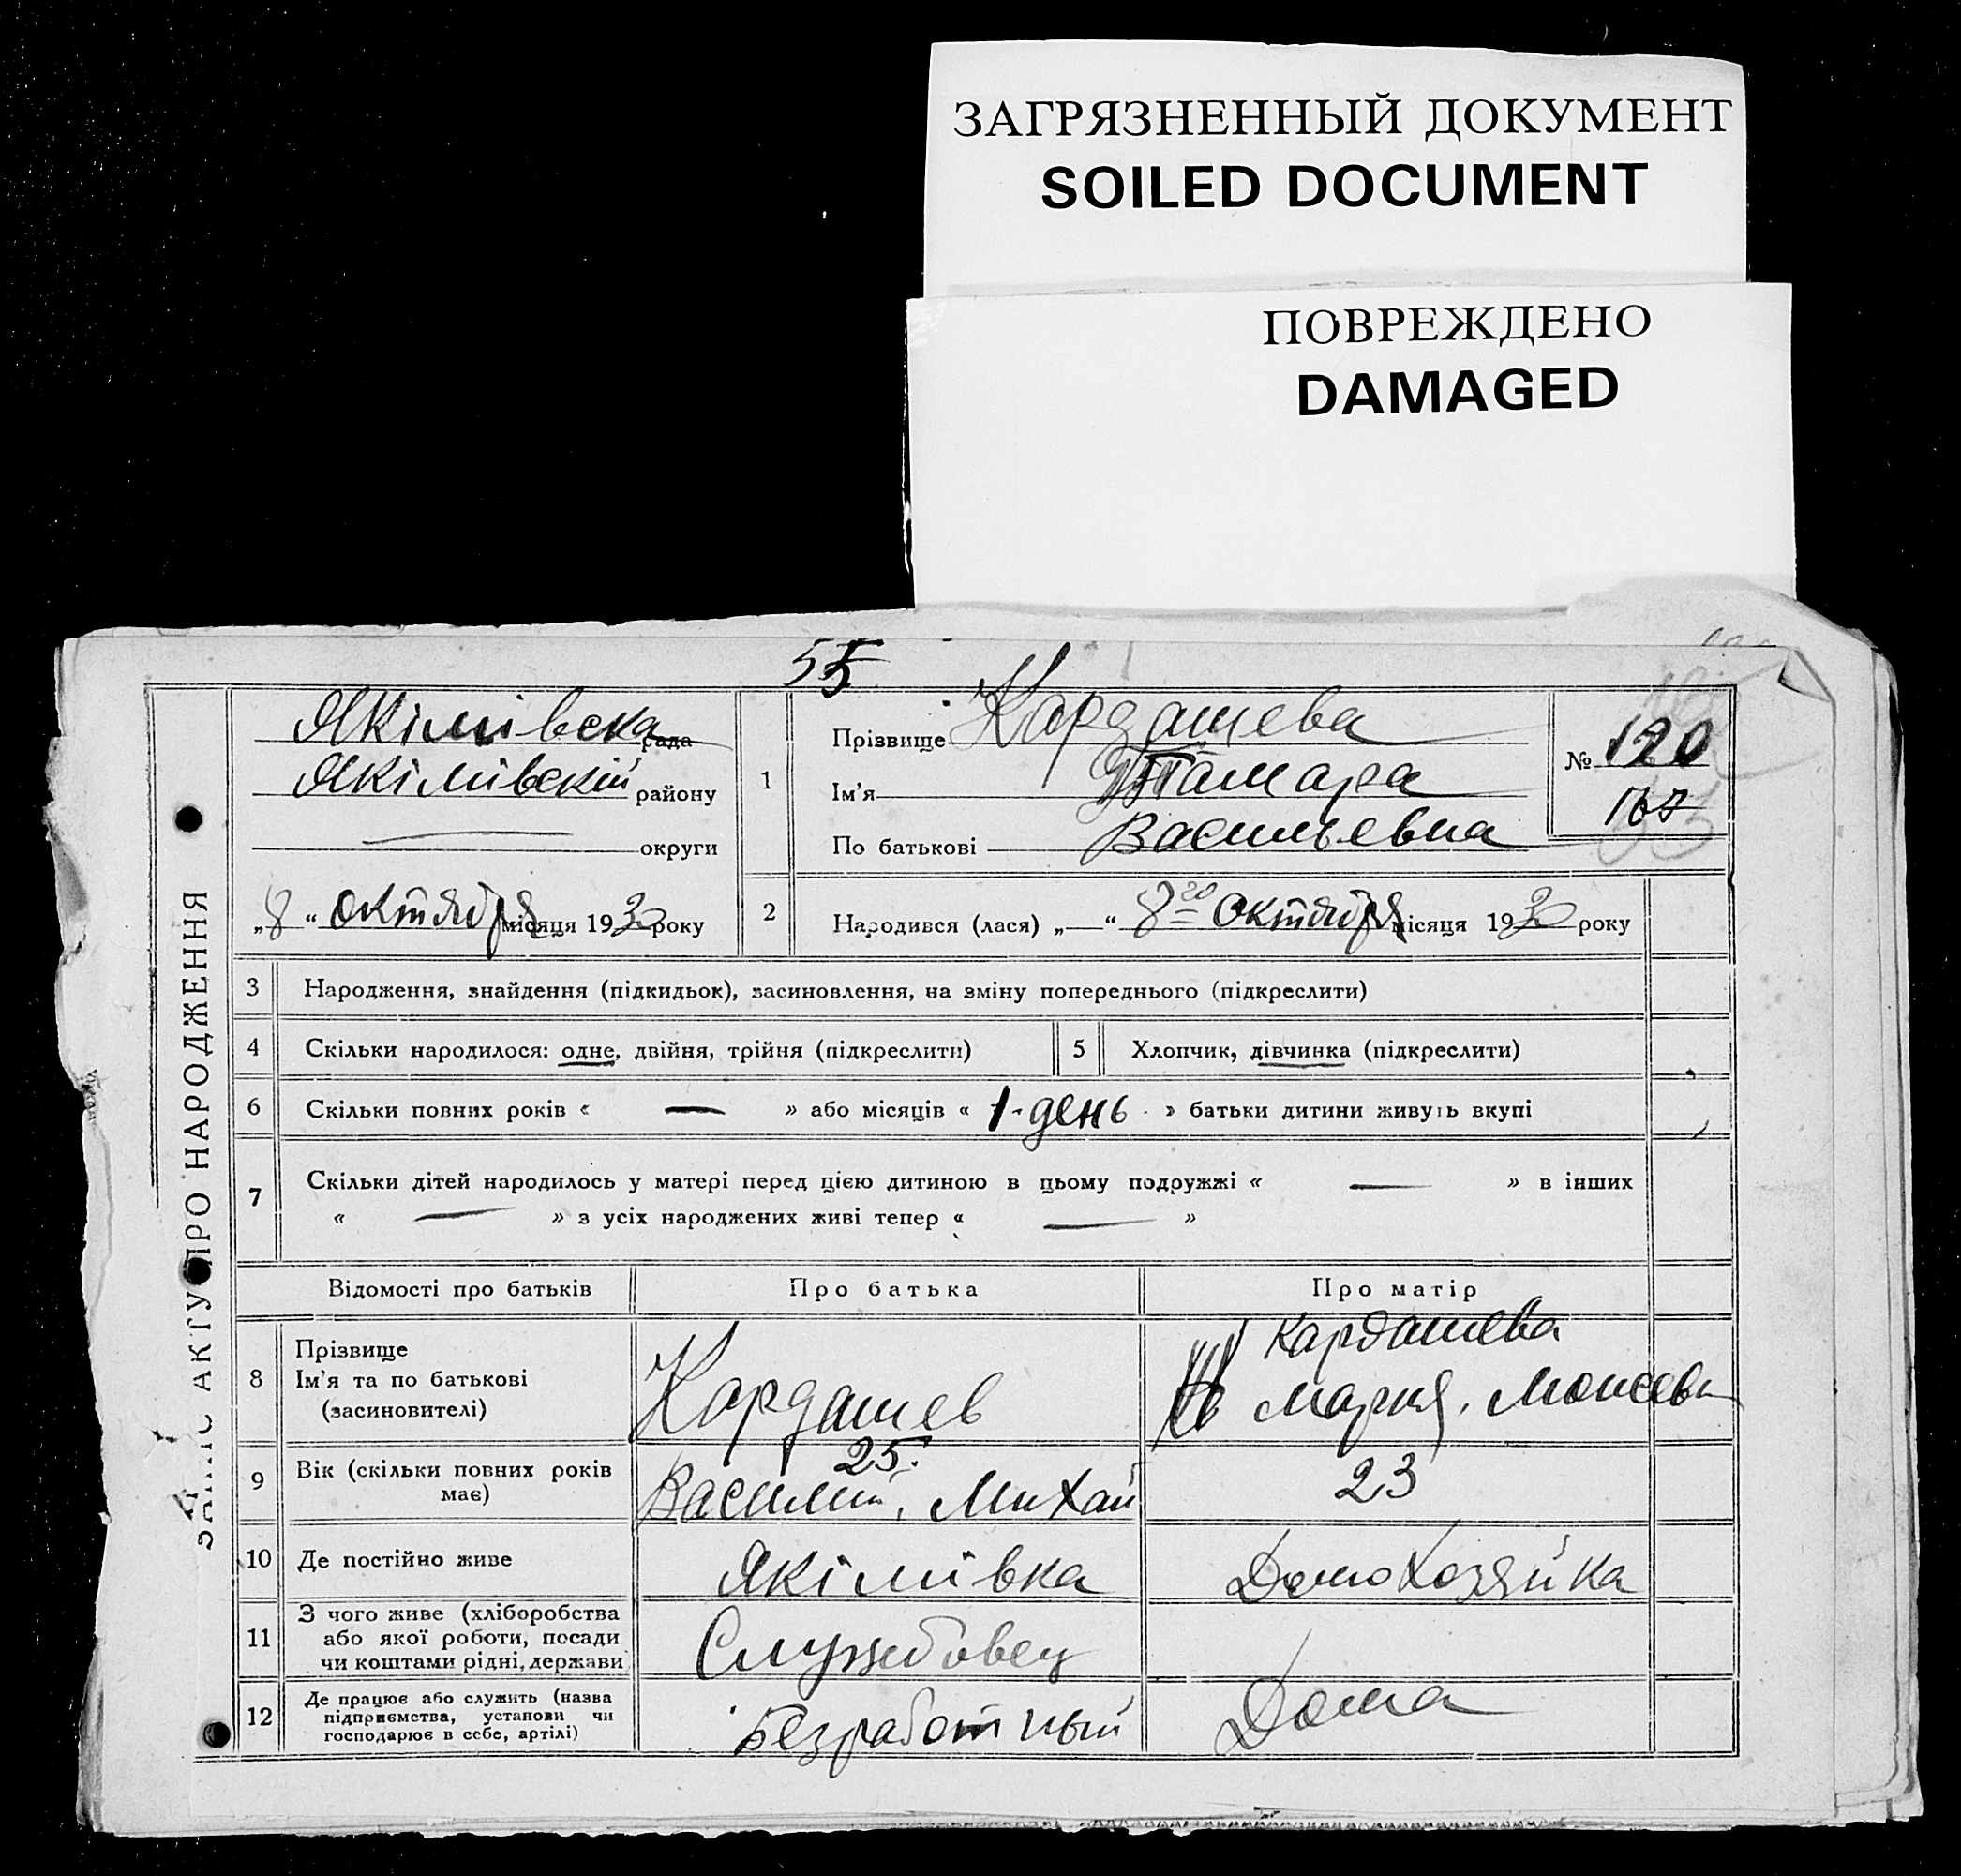 ЗАГРЯЗНЕННЫЙ ДОКУМЕНТ
SOILED DOCUMENT
ПОВРЕЖДЕНО
DAMAGED
55
ЗАПИС АКТУ ПРО НАРОДЖЕННЯ
Якімівска рада
Якімівскій району
округи
„8“ октября місяця 1930 року
1
Прізвище Кардашева
Ім'я Тамара
По батькові Васильевна
№ 120
167
2
Народився (лася) „—“ 8 20 октября місяця 1930 року
3 Народження, знайдення (підкидьок), засиновлення, на зміну попереднього (підкреслити)
4 Скільки народилося: одне, двійня, трійня (підкреслити) 5 Хлопчик, дівчинка (підкреслити)
6 Скільки повних років « — » або місяців « 1-день » батьки дитини живуть вкупі
7 Скільки дітей народилось у матері перед цією дитиною в цьому подружжі « — » в інших
« — » з усіх народжених живі тепер « — »
Відомості про батьків Про батька Про матір
8 Прізвище
Ім'я та по батькові
(засиновителі)
Кардашев
Кардашева
Мария. Моисеевн
9 Вік (скільки повних років
має)
25.
Василий, Михай
23
10 Де постійно живе Якімівка Домохозяйка
11 З чого живе (хліборобства
або якої роботи, посади
чи коштами рідні, держави
Службовец
12 Де працює або служить (назва
підприємства, установи чи
господарює в себе, артілі)
Безработный
Дома